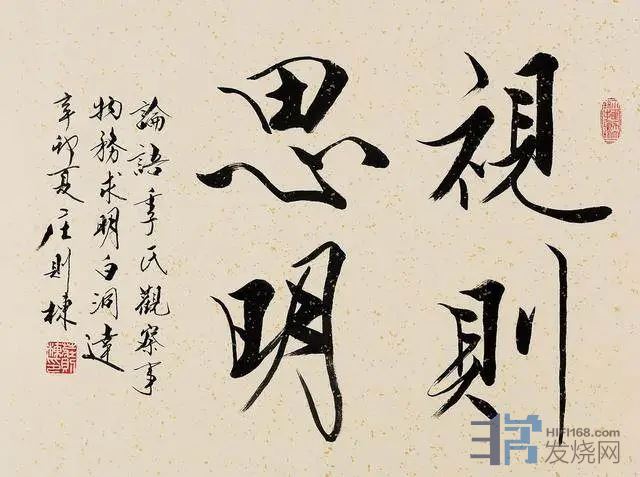 視則
思明
論語季氏觀察事
物務求明白洞達
辛卯夏庄則棟
HIFI168.com
发烧网